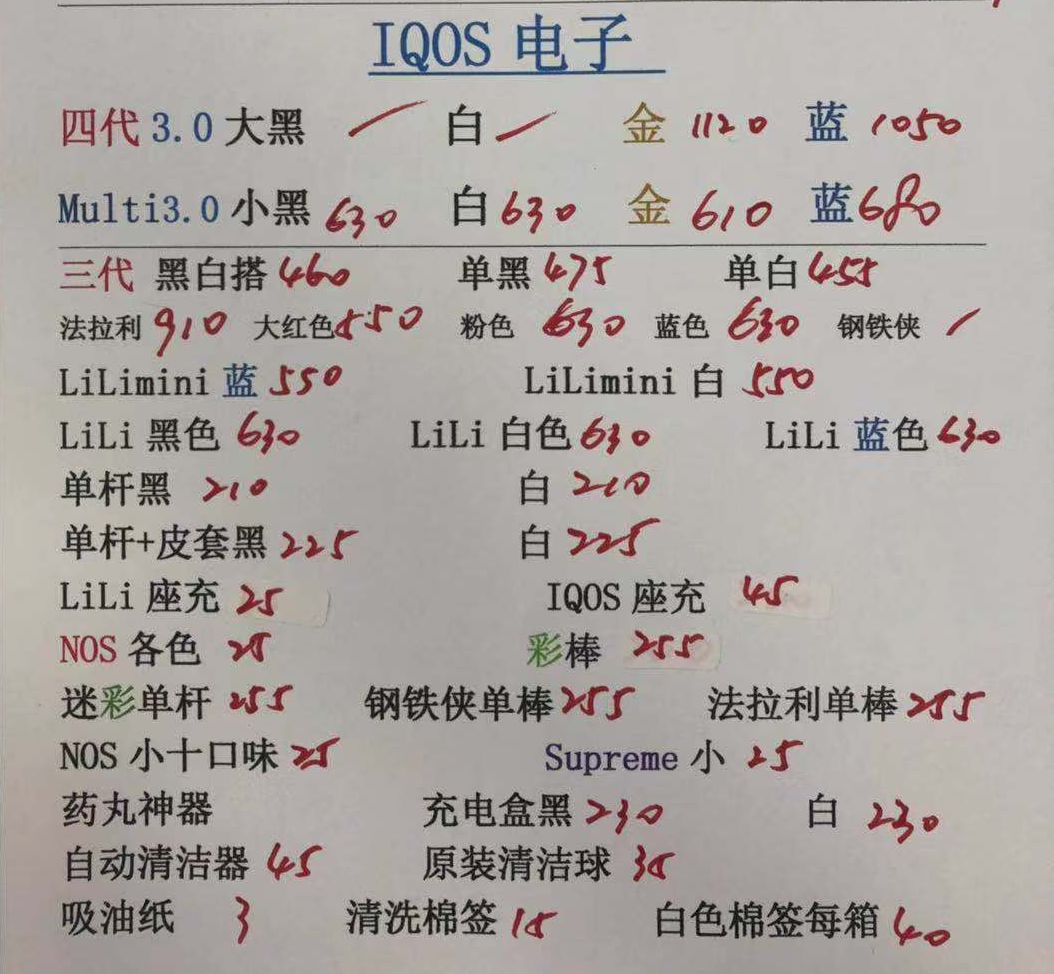 IQOS 电子
四代 3.0 大黑 / 白 / 金 1120 蓝 1050
Multi3.0 小黑 630 白 630 金 610 蓝 680
三代 黑白搭 460 单黑 475 单白 455
法拉利 910 大红色 550 粉色 630 蓝色 630 钢铁侠 /
LiLimini 蓝 550 LiLimini 白 550
LiLi 黑色 630 LiLi 白色 630 LiLi 蓝色 630
单杆黑 210 白 210
单杆+皮套黑 225 白 225
LiLi 座充 25 IQOS 座充 45
NOS 各色 25 彩棒 255
迷彩单杆 255 钢铁侠单棒 255 法拉利单棒 255
NOS 小十口味 25 Supreme 小 25
药丸神器 充电盒黑 230 白 230
自动清洁器 45 原装清洁球
吸油纸 3 清洗棉签 18 白色棉签每箱 40